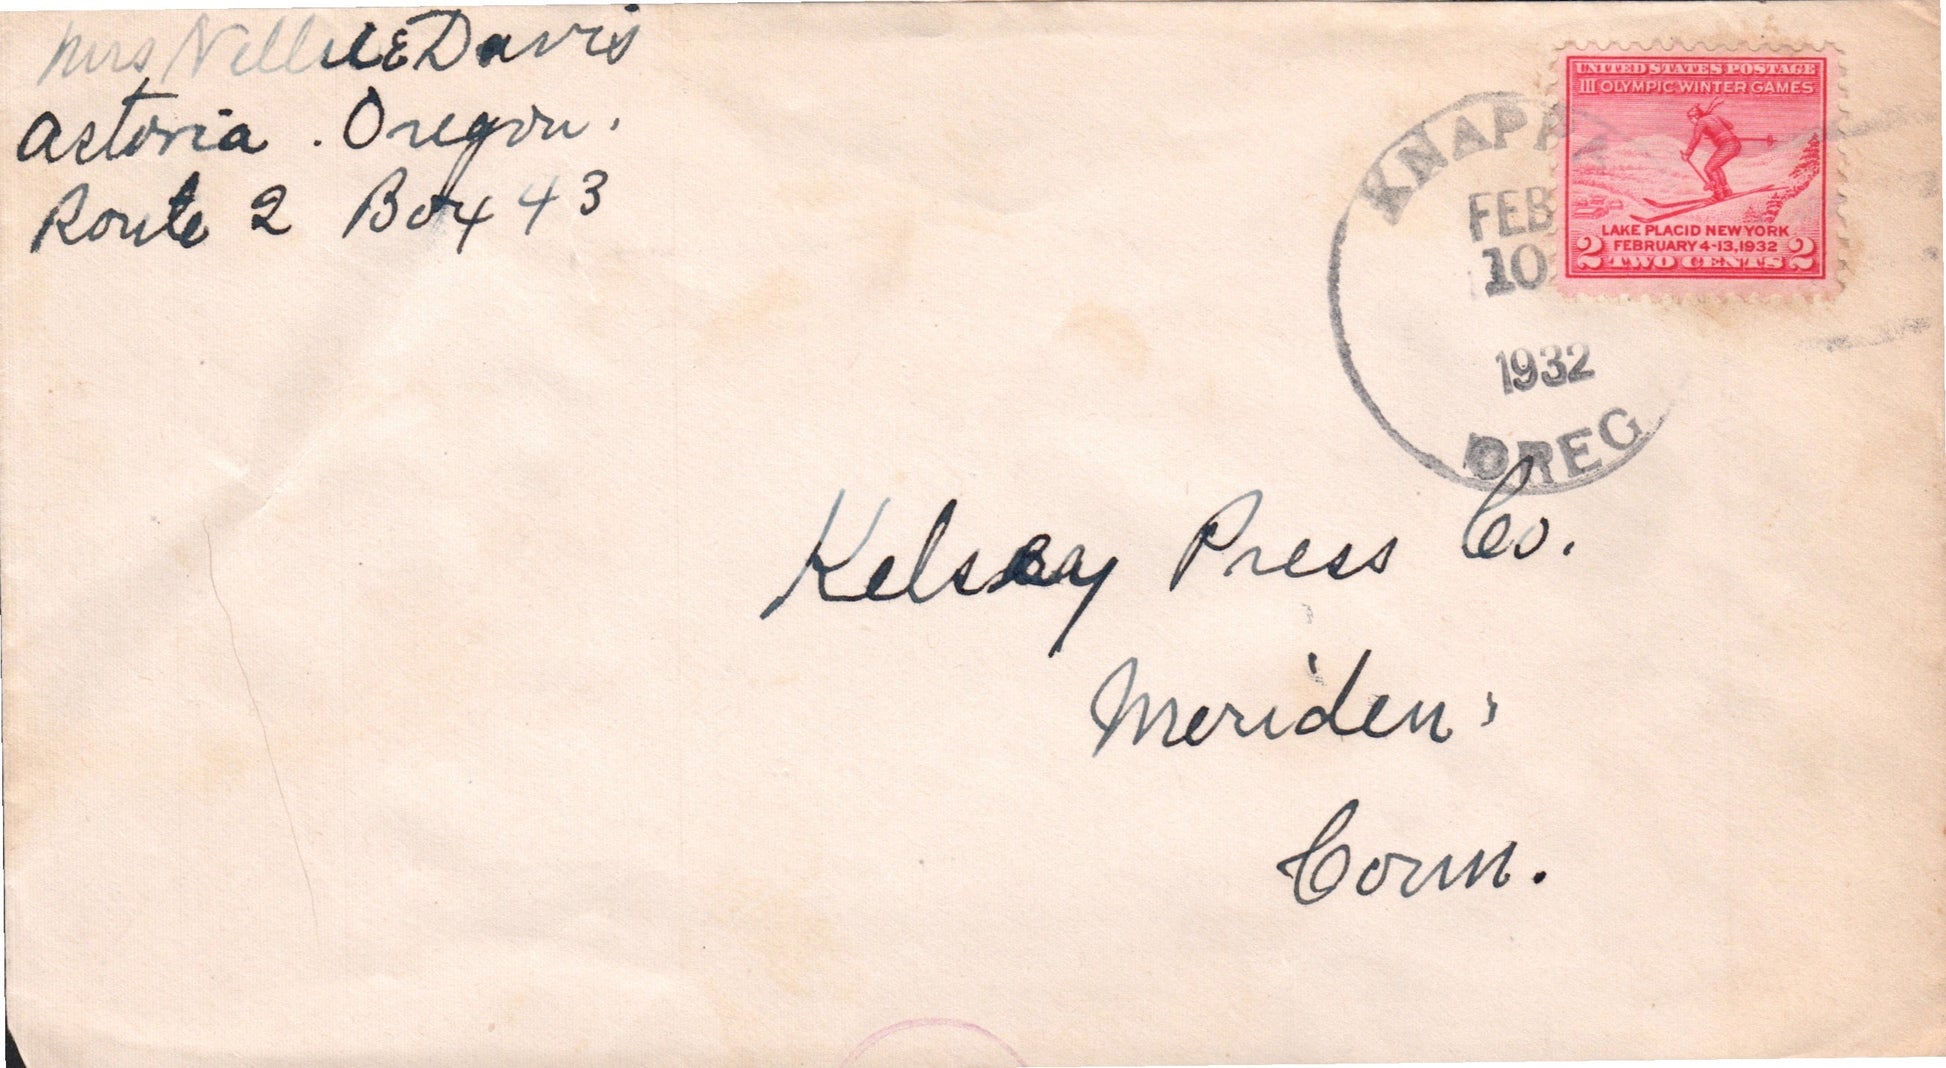 Mrs Nellie E Davis
Astoria. Oregon.
Route 2 Box 43
KNAPPA
FEB
10
1932
OREG
UNITED STATES POSTAGE
III OLYMPIC WINTER GAMES
LAKE PLACID NEW YORK
FEBRUARY 4-13, 1932
2 TWO CENTS 2
Kelsey Press Co.
Meriden,
Conn.